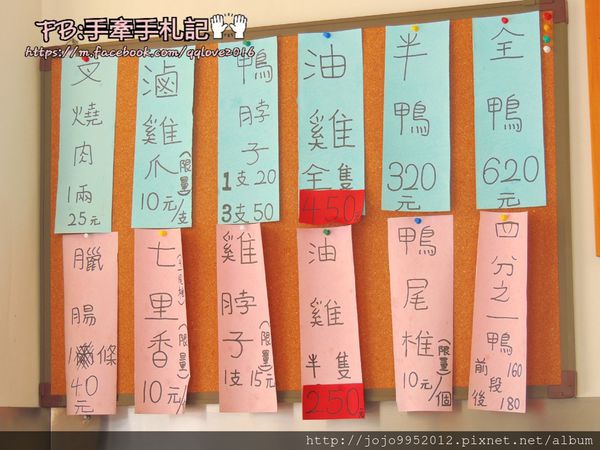 FB:手牽手札記
https://m.facebook.com/qqlove2016
全鴨
620
元
半鴨
320
元
油雞
全隻
450
鴨脖子
1支20
3支50
滷雞爪
(限量)
10元/支
叉燒肉
1兩
25元
四分之一鴨
前段160
後180
鴨尾椎
(限量)
10元/個
油雞
半隻
250
雞脖子
(限量)
1支15元
七里香
(限量)
10元/
臘腸
1條
40
元
http://jojo9952012.pixnet.net/album